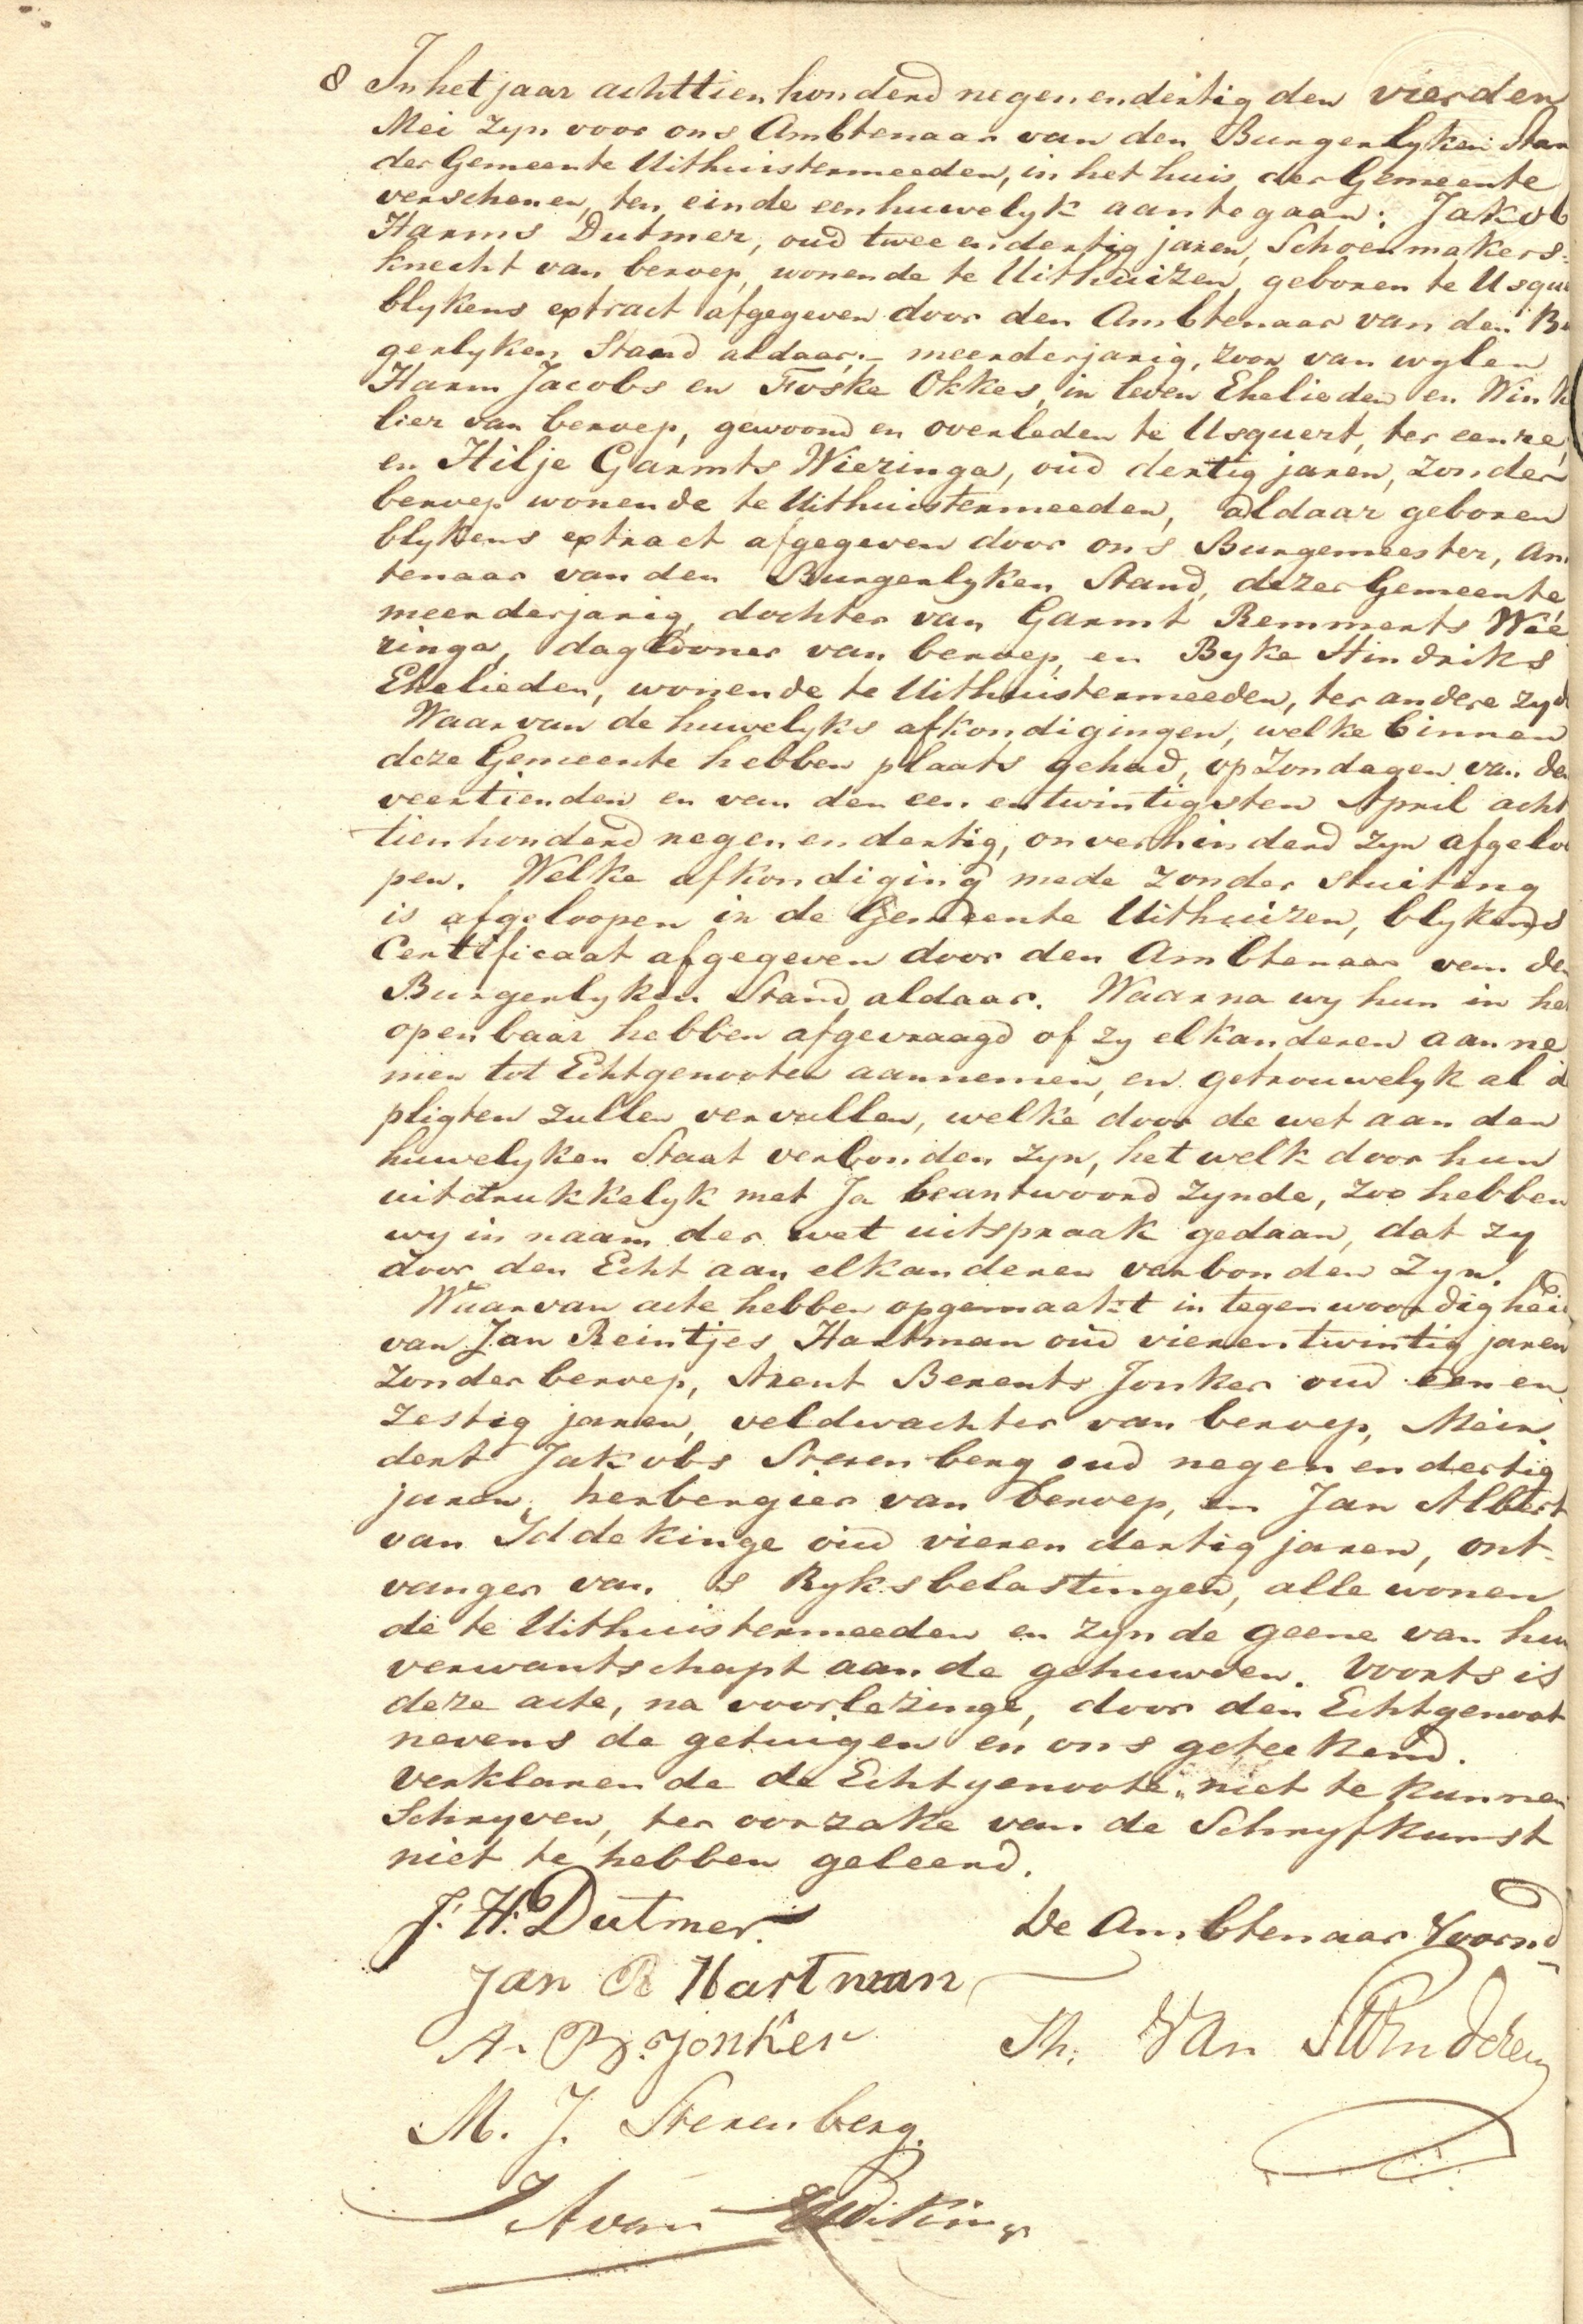 8 In het jaar achttien honderd negen en dertig den vierden
Mei zyn voor ons Ambtenaar van den Burgerlyken Stan
der Gemeente Uithuistermeeden, in het huis der Gemeente
verschenen, ten einde een huwelyk aantegaan: Jakob
Harms Dutmer, oud twee en dertig jaren, Schoenmakers-
knecht van beroep, wonende te Uithuizen, geboren te Usque
blykens extract afgegeven door den Ambtenaar van den Bu
gerlyken Stand aldaar,- meerderjarig, zoon van wylen
Harm Jacobs en Foske Okkes, in leven Ehelieden en Wink
lier van beroep, gewoond en overleden te Usquert, ter eenre,
en Hilje Garmts Wieringa, oud dertig jaren, zonder
beroep wonende te Uithuistermeeden, aldaar geboren
blykens extract afgegeven door ons Burgemeester, Am
tenaar van den Burgerlyken Stand, dezer Gemeente,
meerderjarig, dochter van Garmt Remmerts Wie
ringa, dagloner van beroep, en Byke Hindriks
Ehelieden, wonende te Uithuistermeeden, ter andere zyd
Waarvan de huwelyks afkondigingen, welke binnen
deze Gemeente hebben plaats gehad, op Zondagen van den
veertienden en van den een en twintigsten April acht
tienhonderd negen en dertig, onverhinderd zyn afgeloo
pen. Welke afkondiging mede zonder stuiting
is afgeloopen in de Gemeente Uithuizen, blykends
Certificaat afgegeven door den Ambtenaar van den
Burgerlyken Stand aldaar. Waarna wy hun in het
openbaar hebben afgevraagd of zy elkanderen aanne
men tot Echtgenooten aannemen, en getrouwelyk al d
pligten zullen vervullen, welke door de wet aan den
huwelyken Staat verbonden zyn, het welk door hun
uitdrukkelyk met Ja beantwoord zynde, zoo hebben
wy in naam der wet uitspraak gedaan, dat zy
door den Echt aan elkanderen verbonden zyn.
Waarvan acte hebben opgemaakt in tegenwoordigheid
van Jan Reintjes Hartman oud vier en twintig jaren
zonder beroep, Arent Berents Jonker oud een en
zestig jaren, veldwachter van beroep, Mein
dert Jakobs Sterenberg oud negen en dertig
jaren, herbergier van beroep, en Jan Albert
van Iddekinge oud vier en dertig jaren, ont-
vanger van s Ryksbelastingen, alle wonen
de te Uithuistermeeden en zynde geene van hun
verwantschapt aan de gehuwden. Voorts is
deze acte, na voorlezinge, door den Echtgenoot
nevens de getuigen en ons geteekend.
Verklarende de Echtgenoote, niet te kunnen
Schryven, ter oorzake van de Schryfkunst
niet te hebben geleerd.
J. H. Dutmer. De Ambtenaar Voornd
Jan R Hartman
A. B. Jonker Th. Van
M. J. Sterenberg.
J A van